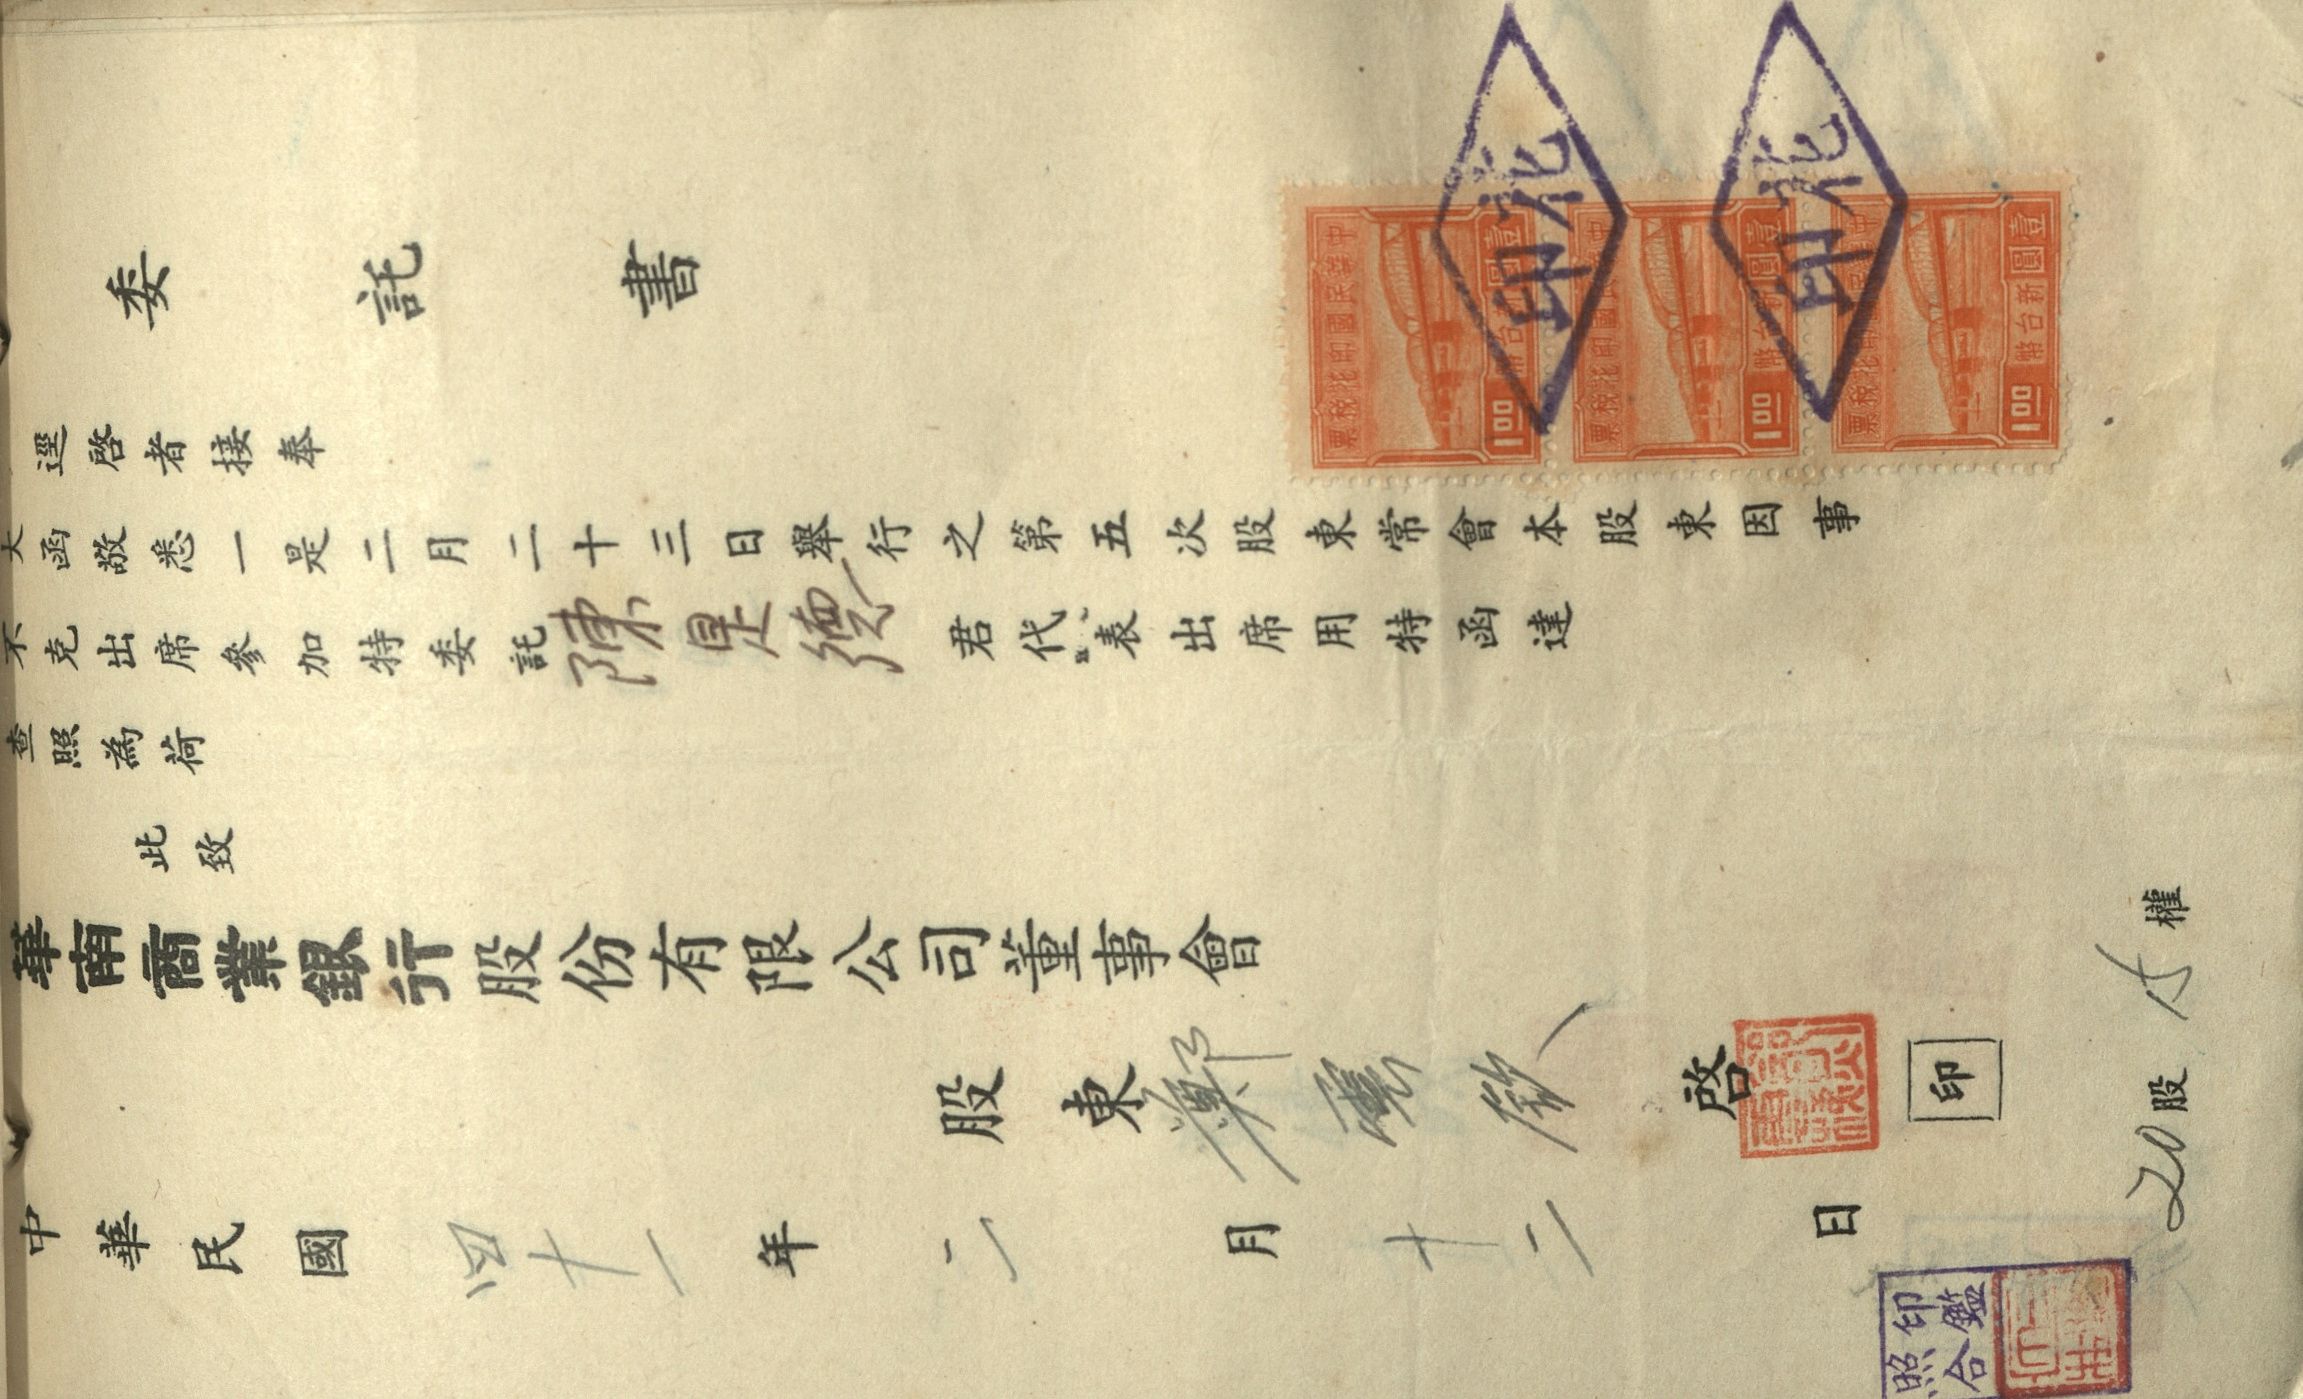 委託書
逕啓者接奉
大函敬悉一是二月二十三日舉行之第五次股東常會本股東因事
不克出席參加特委託陳是德君代表出席用特函達
查照為荷
此致
華南商業銀行股份有限公司董事會
股東鄭雲欽啓
印
中華民國四十一年二月十二日
20股 15權
中華民國印花稅票
壹圓新台幣
1.00
壹圓新台幣
1.00
壹圓新台幣
1.00
北印
北印
印鑑
照合